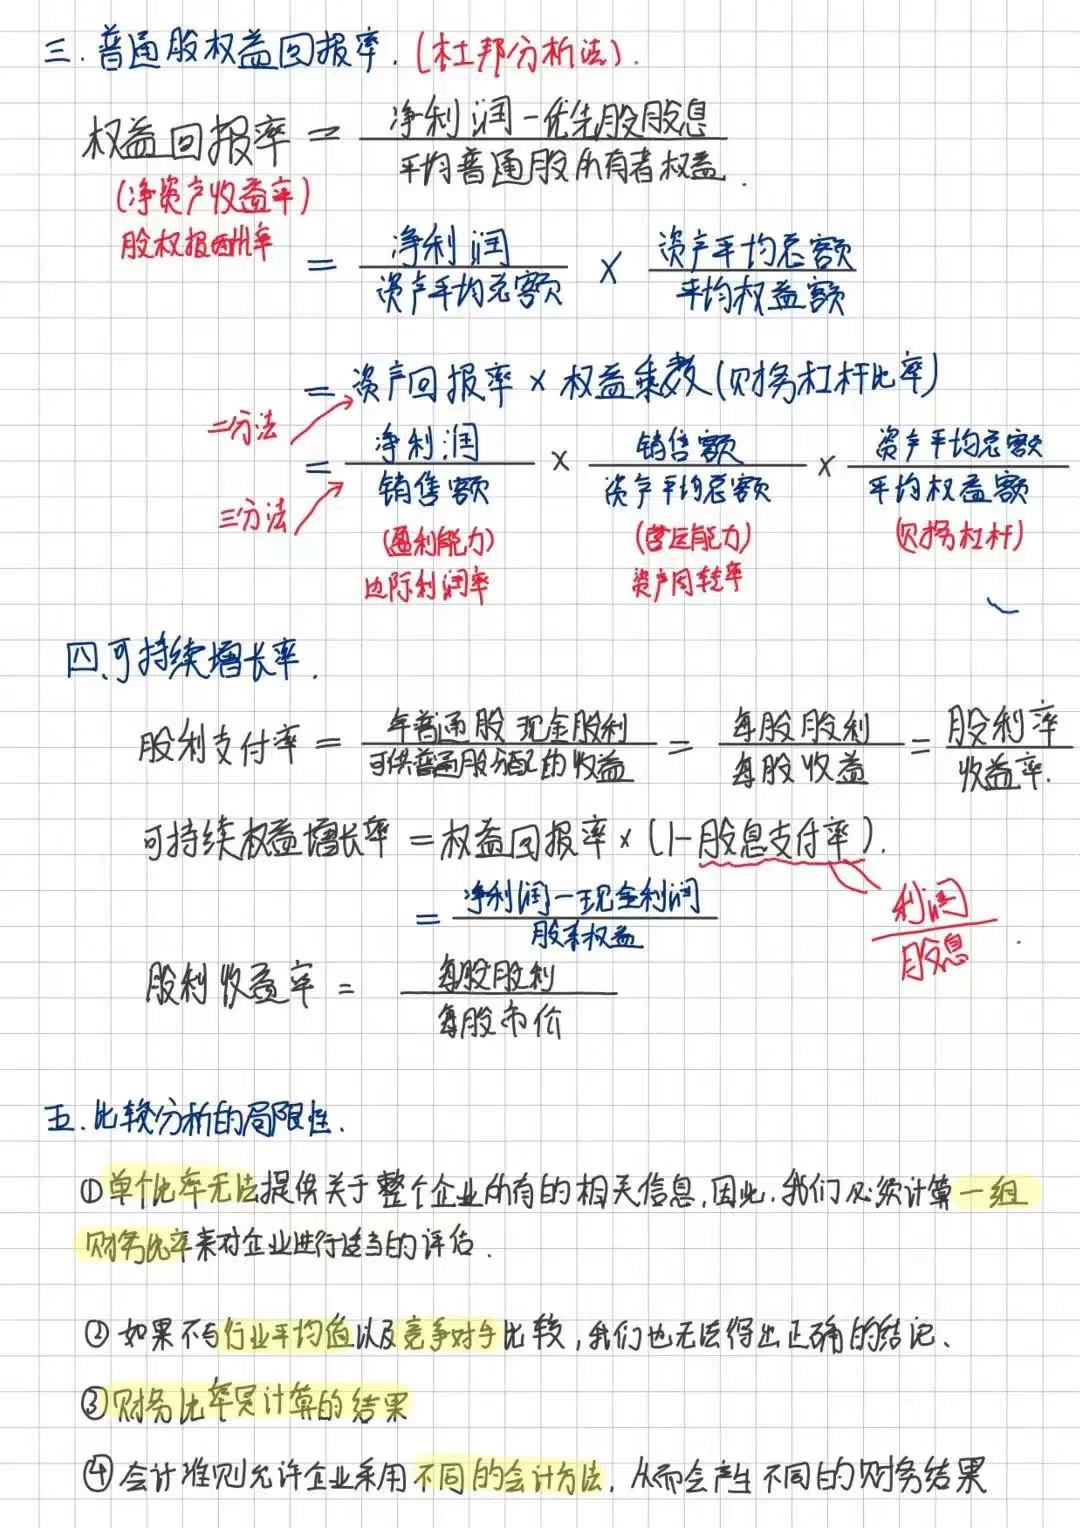 三.普通股权益回报率.(杜邦分析法).
权益回报率 = 净利润-优先股股息 / 平均普通股所有者权益.
(净资产收益率)
股权报酬率
= 净利润 / 资产平均总额 × 资产平均总额 / 平均权益额
= 资产回报率 × 权益乘数(财务杠杆比率)
二分法
= 净利润 / 销售额 × 销售额 / 资产平均总额 × 资产平均总额 / 平均权益额
三分法
(盈利能力) (营运能力) (财务杠杆)
边际利润率 资产周转率
四.可持续增长率.
股利支付率 = 年普通股现金股利 / 可供普通股分配的收益 = 每股股利 / 每股收益 = 股利率 / 收益率.
可持续权益增长率 = 权益回报率 × (1-股息支付率).
= 净利润-现金利润 / 股东权益
利润 / 股息.
股利收益率 = 每股股利 / 每股市价
五.比较分析的局限性.
①单个比率无法提供关于整个企业所有的相关信息,因此,我们必须计算一组
财务比率来对企业进行适当的评估.
②如果不与行业平均值以及竞争对手比较,我们也无法得出正确的结论、
③财务比率只计算的结果
④会计准则允许企业采用不同的会计方法,从而会产生不同的财务结果